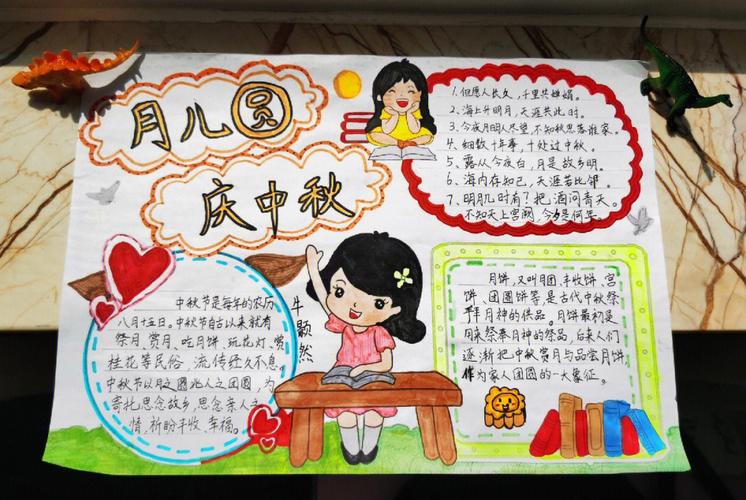 月儿圆
庆中秋
1、但愿人长久，千里共婵娟。
2、海上升明月，天涯共此时。
3、今夜月明人尽望，不知秋思落谁家。
4、细数十年事，十处过中秋。
5、露从今夜白，月是故乡明。
6、海内存知己，天涯若比邻。
7、明月几时有？把酒问青天。
不知天上宫阙，今夕是何年
中秋节是每年的农历
八月十五日。中秋节自古以来就有
祭月、赏月、吃月饼、玩花灯、赏
桂花等民俗，流传经久不息。
中秋节以月之圆兆人之团圆，为
寄托思念故乡，思念亲人之
情，祈盼丰收、幸福。
牛颢然
月饼，又叫月团、丰收饼、宫
饼、团圆饼等，是古代中秋祭
拜月神的供品。月饼最初是
用来祭奉月神的祭品，后来人们
逐渐把中秋赏月与品尝月饼，
作为家人团圆的一大象征。